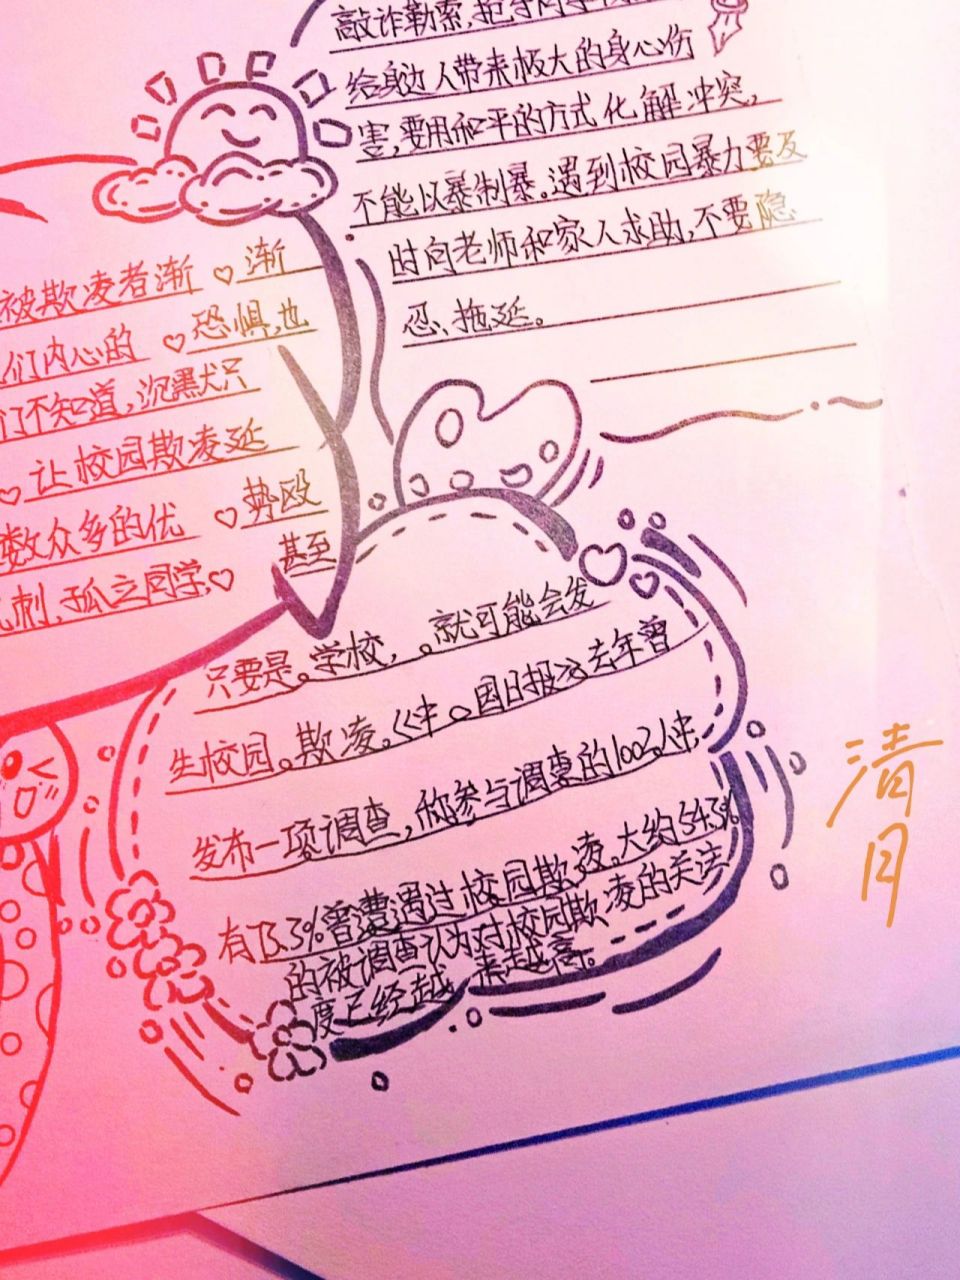 敲诈勒索,抢夺同学
给身边人带来极大的身心伤
害,要用和平的方式化解冲突,
不能以暴制暴。遇到校园暴力要及
时向老师和家人求助,不要隐
忍、拖延。
被欺凌者渐渐
们内心的恐惧,也
们不知道,沉默只
让校园欺凌延
数众多的优势殴
刺,孤立同学,甚至
只要是。学校,。就可能会发
生校园。欺凌。《中。国日报》去年曾
发布一项调查,你参与调查的1002人中,
有75.3%曾遭遇过校园欺凌。大约54.3%
的被调查认为对校园欺凌的关注
度已经越来越高。
清月